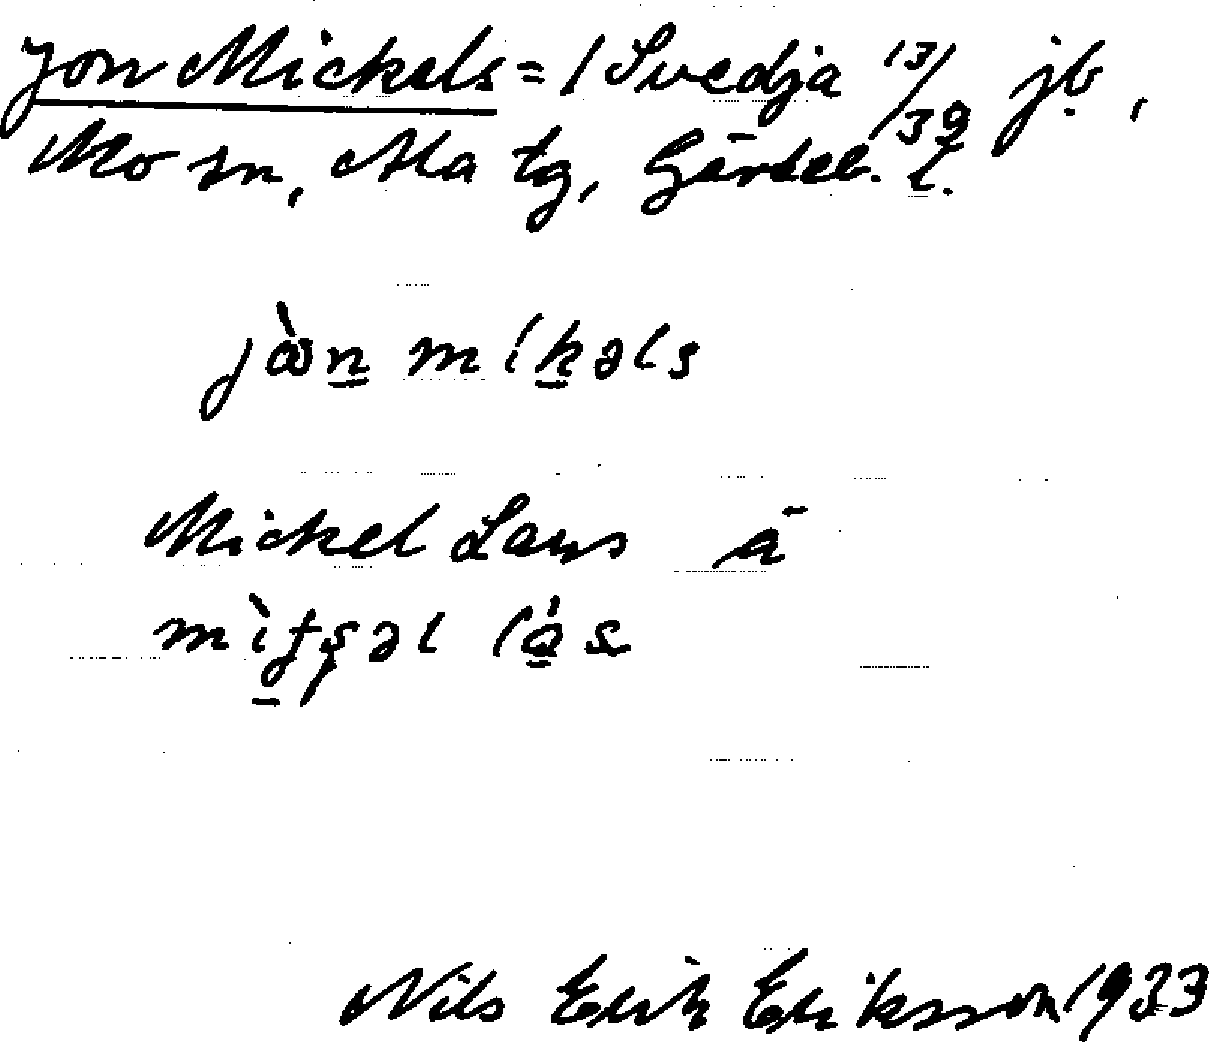 Jon Mickels = / Svedja 13/39 jb,
Mo sn, Ala tg, Gävleb. l.
jòn mikəls
Mickel Lars ä
mìtʂəl lás
Nils Erik Eriksson 1933